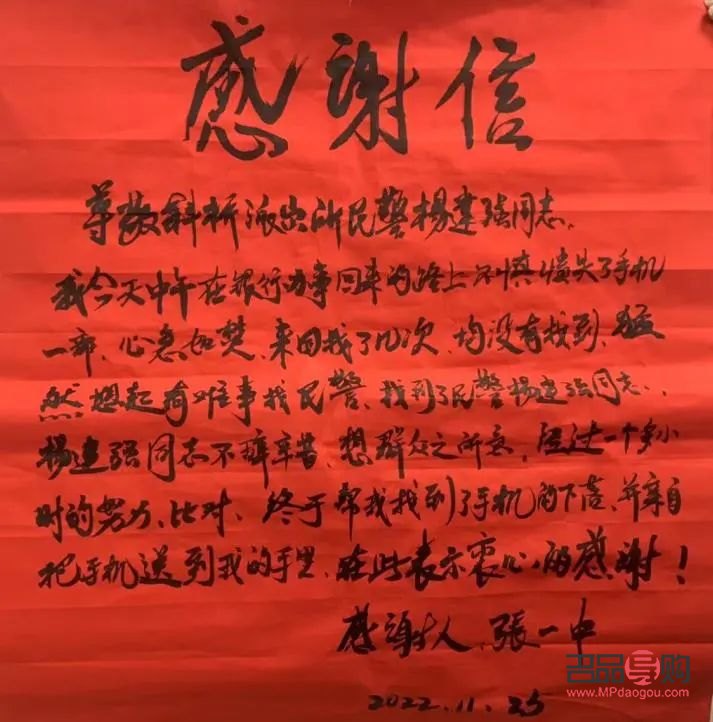 感谢信
尊敬斜桥派出所民警杨建强同志、
我今天中午在银行办事回来的路上不慎遗失了手机
一部、心急如焚、来回找了几次、均没有找到、猛
然想起有难事找民警、找到了民警杨建强同志、
杨建强同志不辞辛苦、想群众之所急，经过一个多小
时的努力、比对、终于帮我找到了手机的下落、并亲自
把手机送到我的手里、在此表示衷心的感谢！
感谢人、張一中
2022.11.25
名品导购
www.MPdaogou.com